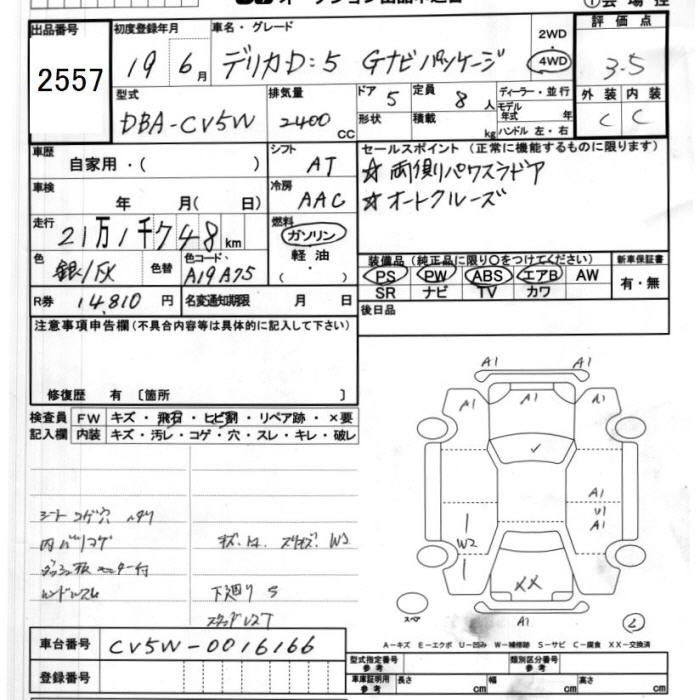 出品番号 初度登録年月 車名・グレード 2WD 4WD 評価点
2557 19 6月 デリカD:5 Gナビパッケージ 3.5
型式 排気量 ドア 5 定員 8人 ディーラー・並行 外装 内装
DBA-CV5W 2400 CC 形状 積載 kg モデル年式 年 C C
ハンドル 左・右
車歴 自家用・( ) シフト AT セールスポイント (正常に機能するものに限ります)
☆両側パワスラドア
車検 年 月( 日) 冷房 AAC ☆オートクルーズ
走行 21万1千748km 燃料 ガソリン
軽油・( )
色 銀/灰 色替 色コード: A19 A75 装備品(純正品に限り〇をつけてください) 新車保証書
PS PW ABS エアB AW 有・無
SR ナビ TV カワ
R券 14,810円 名変通知期限 月 日 後日品
注意事項申告欄(不具合内容等は具体的に記入して下さい)
修復歴 有〔箇所 〕
検査員 FW キズ・飛石・ヒビ割・リペア跡・×要
記入欄 内装 キズ・汚レ・コゲ・穴・スレ・キレ・破レ
A1 A1
A1 A1
A1
U1
A1
W2
XX
A1
スペア
シートコゲ穴
W3
下廻りS
A-キズ E-エクボ U-凹み W-補修跡 S-サビ C-腐食 XX-交換済
車台番号 CV5W-0016166
型式指定番号 参考 類別区分番号 参考
登録番号 車庫証明用 参考 長さ cm 幅 cm 高さ cm